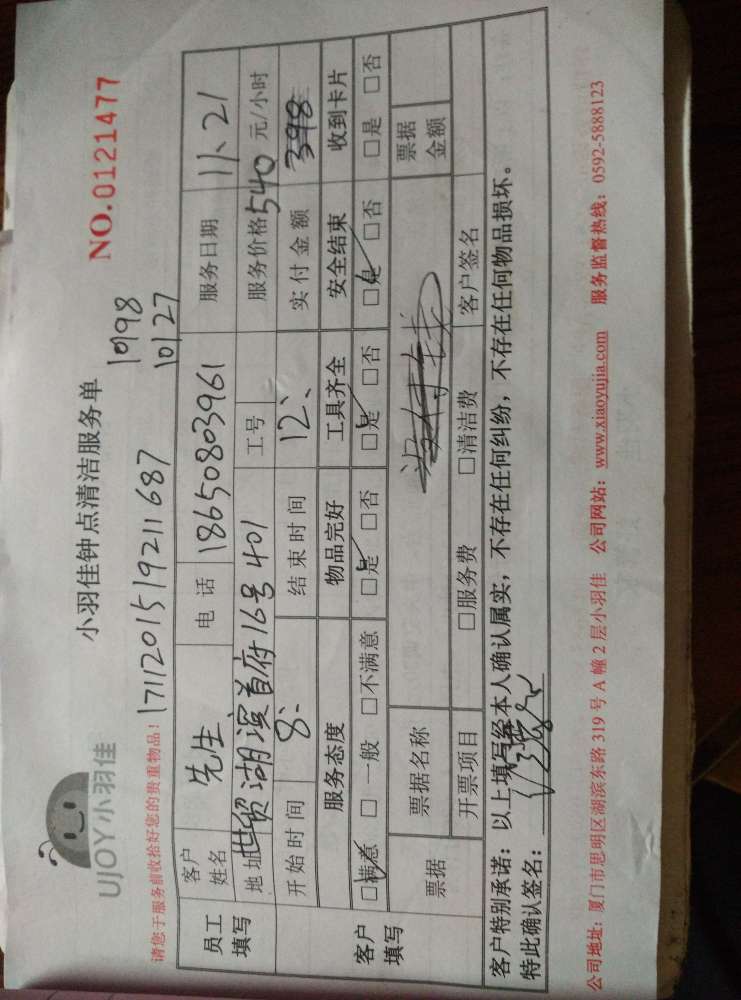 UJOY小羽佳
小羽佳钟点清洁服务单
NO.0121477
请您于服务前收拾好您的贵重物品!
171120151921 1687
10998
10127
员工填写
客户姓名 先生 电话 18650803961 服务日期 11、21
地址 世贸湖滨首府16号401 工号 服务价格 540 元/小时
开始时间 8、 结束时间 12、 实付金额 398
客户填写
服务态度 物品完好 工具齐全 安全结束 收到卡片
□满意 □一般 □不满意 □是 □否 □是 □否 □是 □否 □是 □否
票据 票据名称 票据金额
开票项目 □服务费 □清洁费 客户签名
客户特别承诺:以上填写经本人确认属实,不存在任何纠纷,不存在任何物品损坏。
特此确认签名:
公司地址:厦门市思明区湖滨东路 319 号 A 幢 2 层小羽佳 公司网站:www.xiaoyujia.com 服务监督热线:0592-5888123